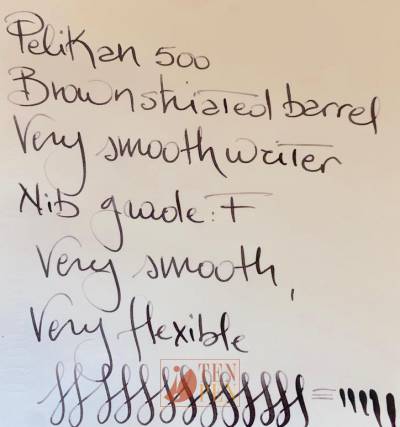 Pelikan 500
Brown striated barrel
Very smooth writer
Nib grade: F
Very smooth,
Very flexible
TEN
PEN